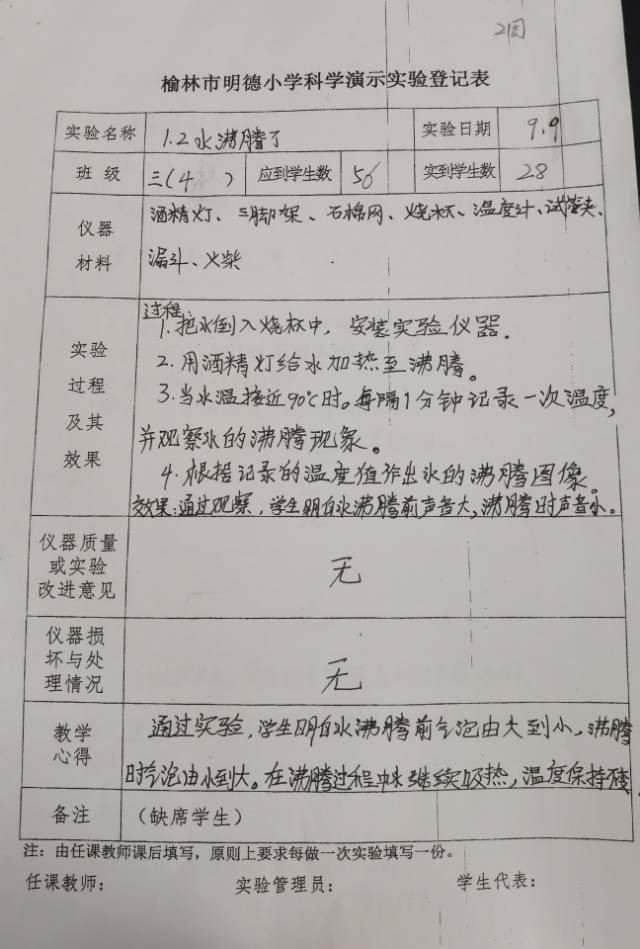 2周
榆林市明德小学科学演示实验登记表
实验名称 1.2水沸腾了 实验日期 9.9
班 级 三(4 ) 应到学生数 56 实到学生数 28
仪器
材料
酒精灯、三脚架、石棉网、烧杯、温度计、试管夹、
漏斗、火柴
实验
过程
及其
效果
过程:
1.把水倒入烧杯中，安装实验仪器.
2.用酒精灯给水加热至沸腾。
3.当水温接近90℃时。每隔1分钟记录一次温度，
并观察水的沸腾现象。
4.根据记录的温度值作出水的沸腾图像。
效果:通过观察，学生明白水沸腾前声音大，沸腾时声音小。
仪器质量
或实验
改进意见
无
仪器损
坏与处
理情况
无
教学
心得
通过实验，学生明白水沸腾前气泡由大到小，沸腾
时气泡由小到大。在沸腾过程中水继续吸热，温度保持不变
备注 （缺席学生）
注：由任课教师课后填写，原则上要求每做一次实验填写一份。
任课教师： 实验管理员： 学生代表：